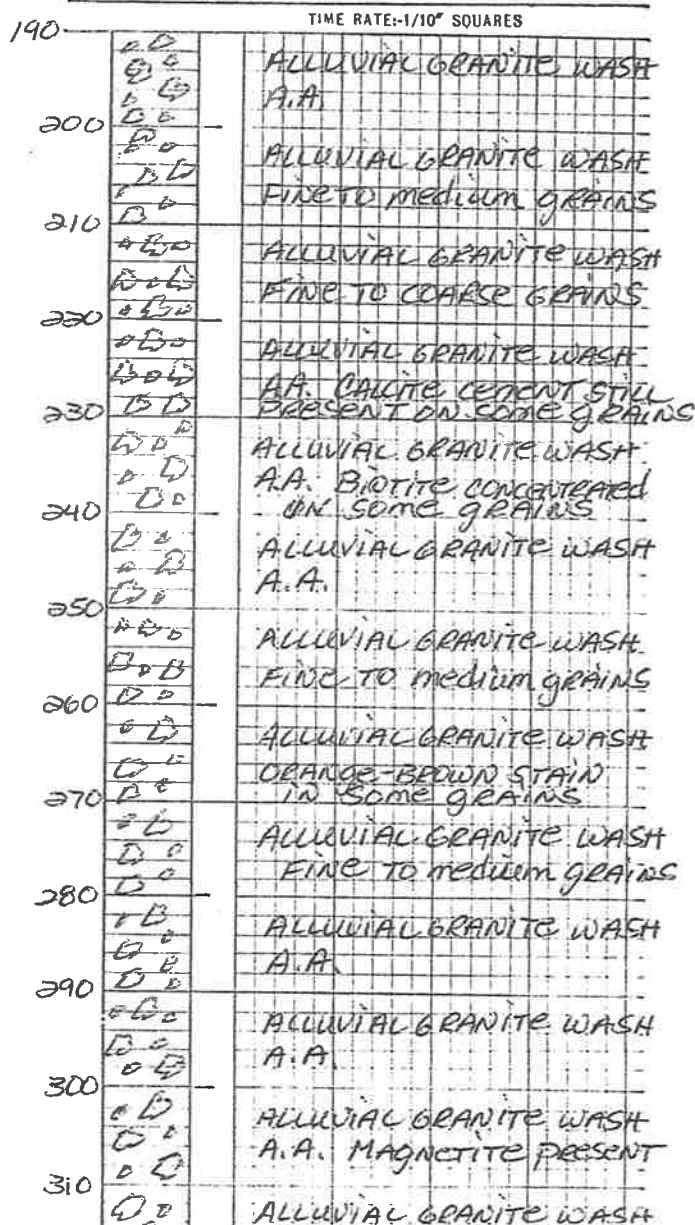 TIME RATE:-1/10" SQUARES
190
ALLUVIAL GRANITE WASH
A.A.
200
ALLUVIAL GRANITE WASH
FINE TO medium GRAINS
210
ALLUVIAL GRANITE WASH
FINE TO COARSE GRAINS
220
ALLUVIAL GRANITE WASH
AA. CALCITE CEMENT STILL
230 PRESENT ON some gRAINS
ALLUVIAL GRANITE WASH
A.A. BIOTITE CONCENTRATED
240 IN some gRAINS
ALLUVIAL GRANITE WASH
A.A.
250
ALLUVIAL GRANITE WASH
FINE TO medium gRAINS
260
ALLUVIAL GRANITE WASH
ORANGE-BROWN STAIN
270 IN some gRAINS
ALLUVIAL GRANITE WASH
FINE TO medium gRAINS
280
ALLUVIAL GRANITE WASH
A.A.
290
ALLUVIAL GRANITE WASH
A.A.
300
ALLUVIAL GRANITE WASH
A.A. MAGNETITE PRESENT
310
ALLUVIAL GRANITE WASH